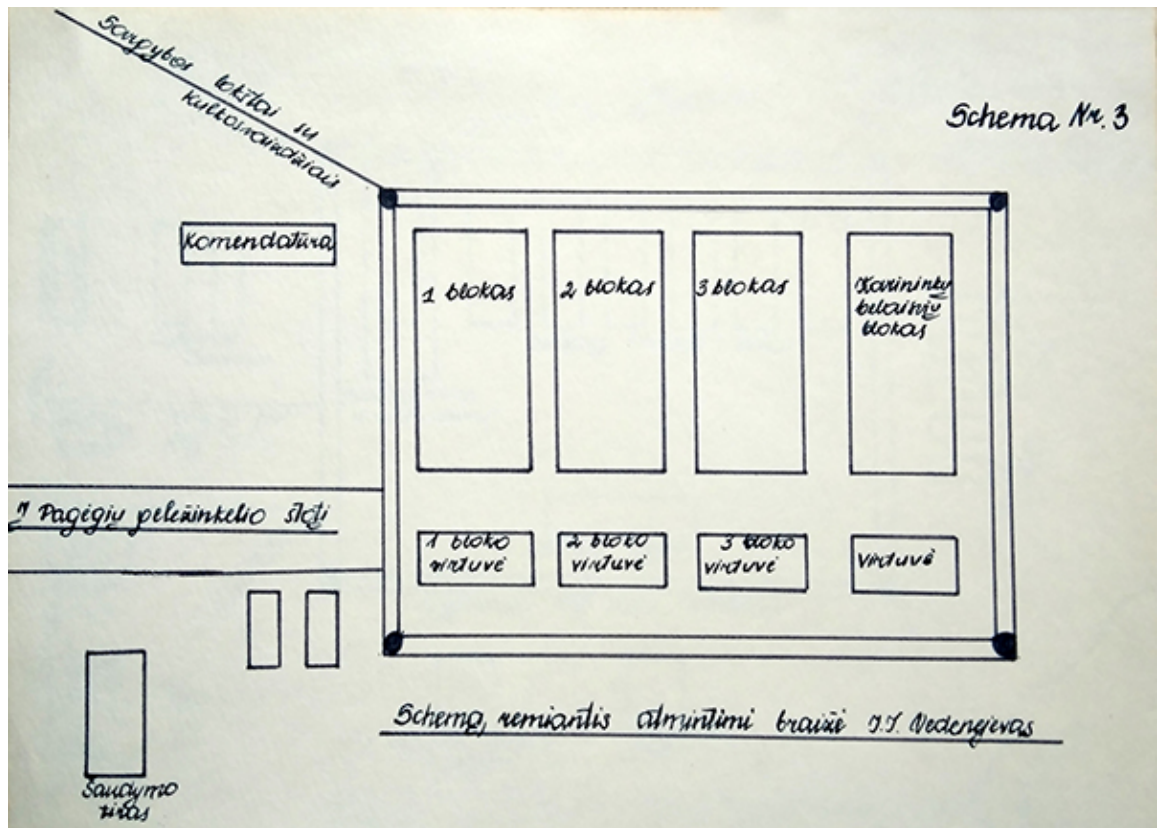 Sargybos bokštai su
kulkosvaidžiais
Schema Nr. 3
Komendatūra
1 blokas
2 blokas
3 blokas
Karininkų
belaisvių
blokas
Į Pagėgių geležinkelio stotį
1 bloko
virtuvė
2 bloko
virtuvė
3 bloko
virtuvė
Virtuvė
Schemą, remiantis atmintimi braižė J. J.
Šaudymo
tiras